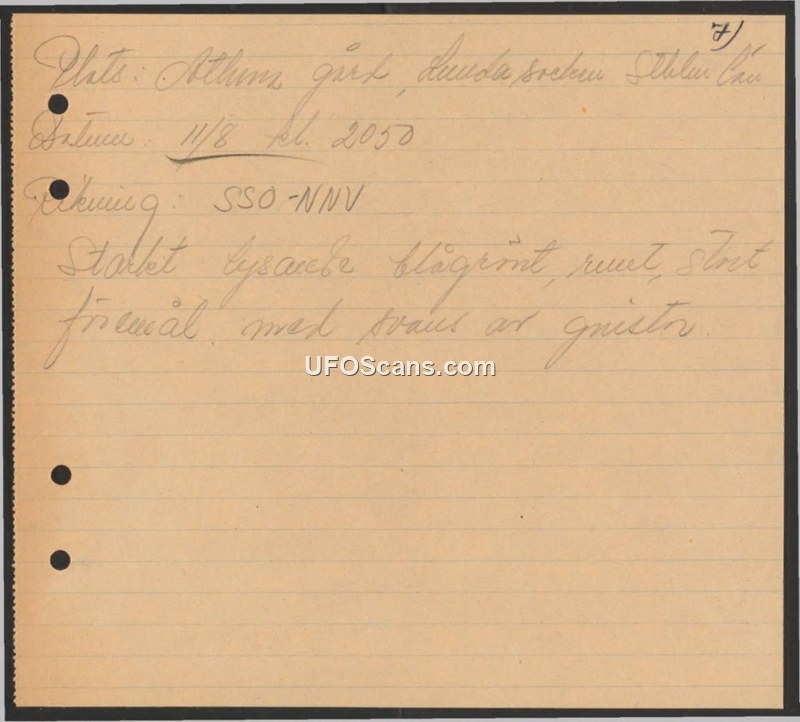 7)
Plats: Athena gård, Lunda socken Sthlm län
Datum: 11/8 kl. 2050
Riktning: SSO-NNV
Starkt lysande blågrönt, runt, stort
föremål med svans av gnistor.
UFOScans.com